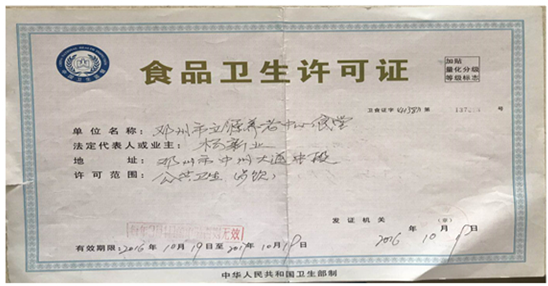 食品卫生许可证
加贴
量化分级
等级标志
卫食证字
单位名称：邓州市立颐养老中心食堂
法定代表人或业主：杨新业
地址：邓州市中州大道中段
许可范围：公共卫生（餐饮）
无效
发证机关（章）
有效期限：2016年10月19日至2017年10月18日
2016年10月
中华人民共和国卫生部制